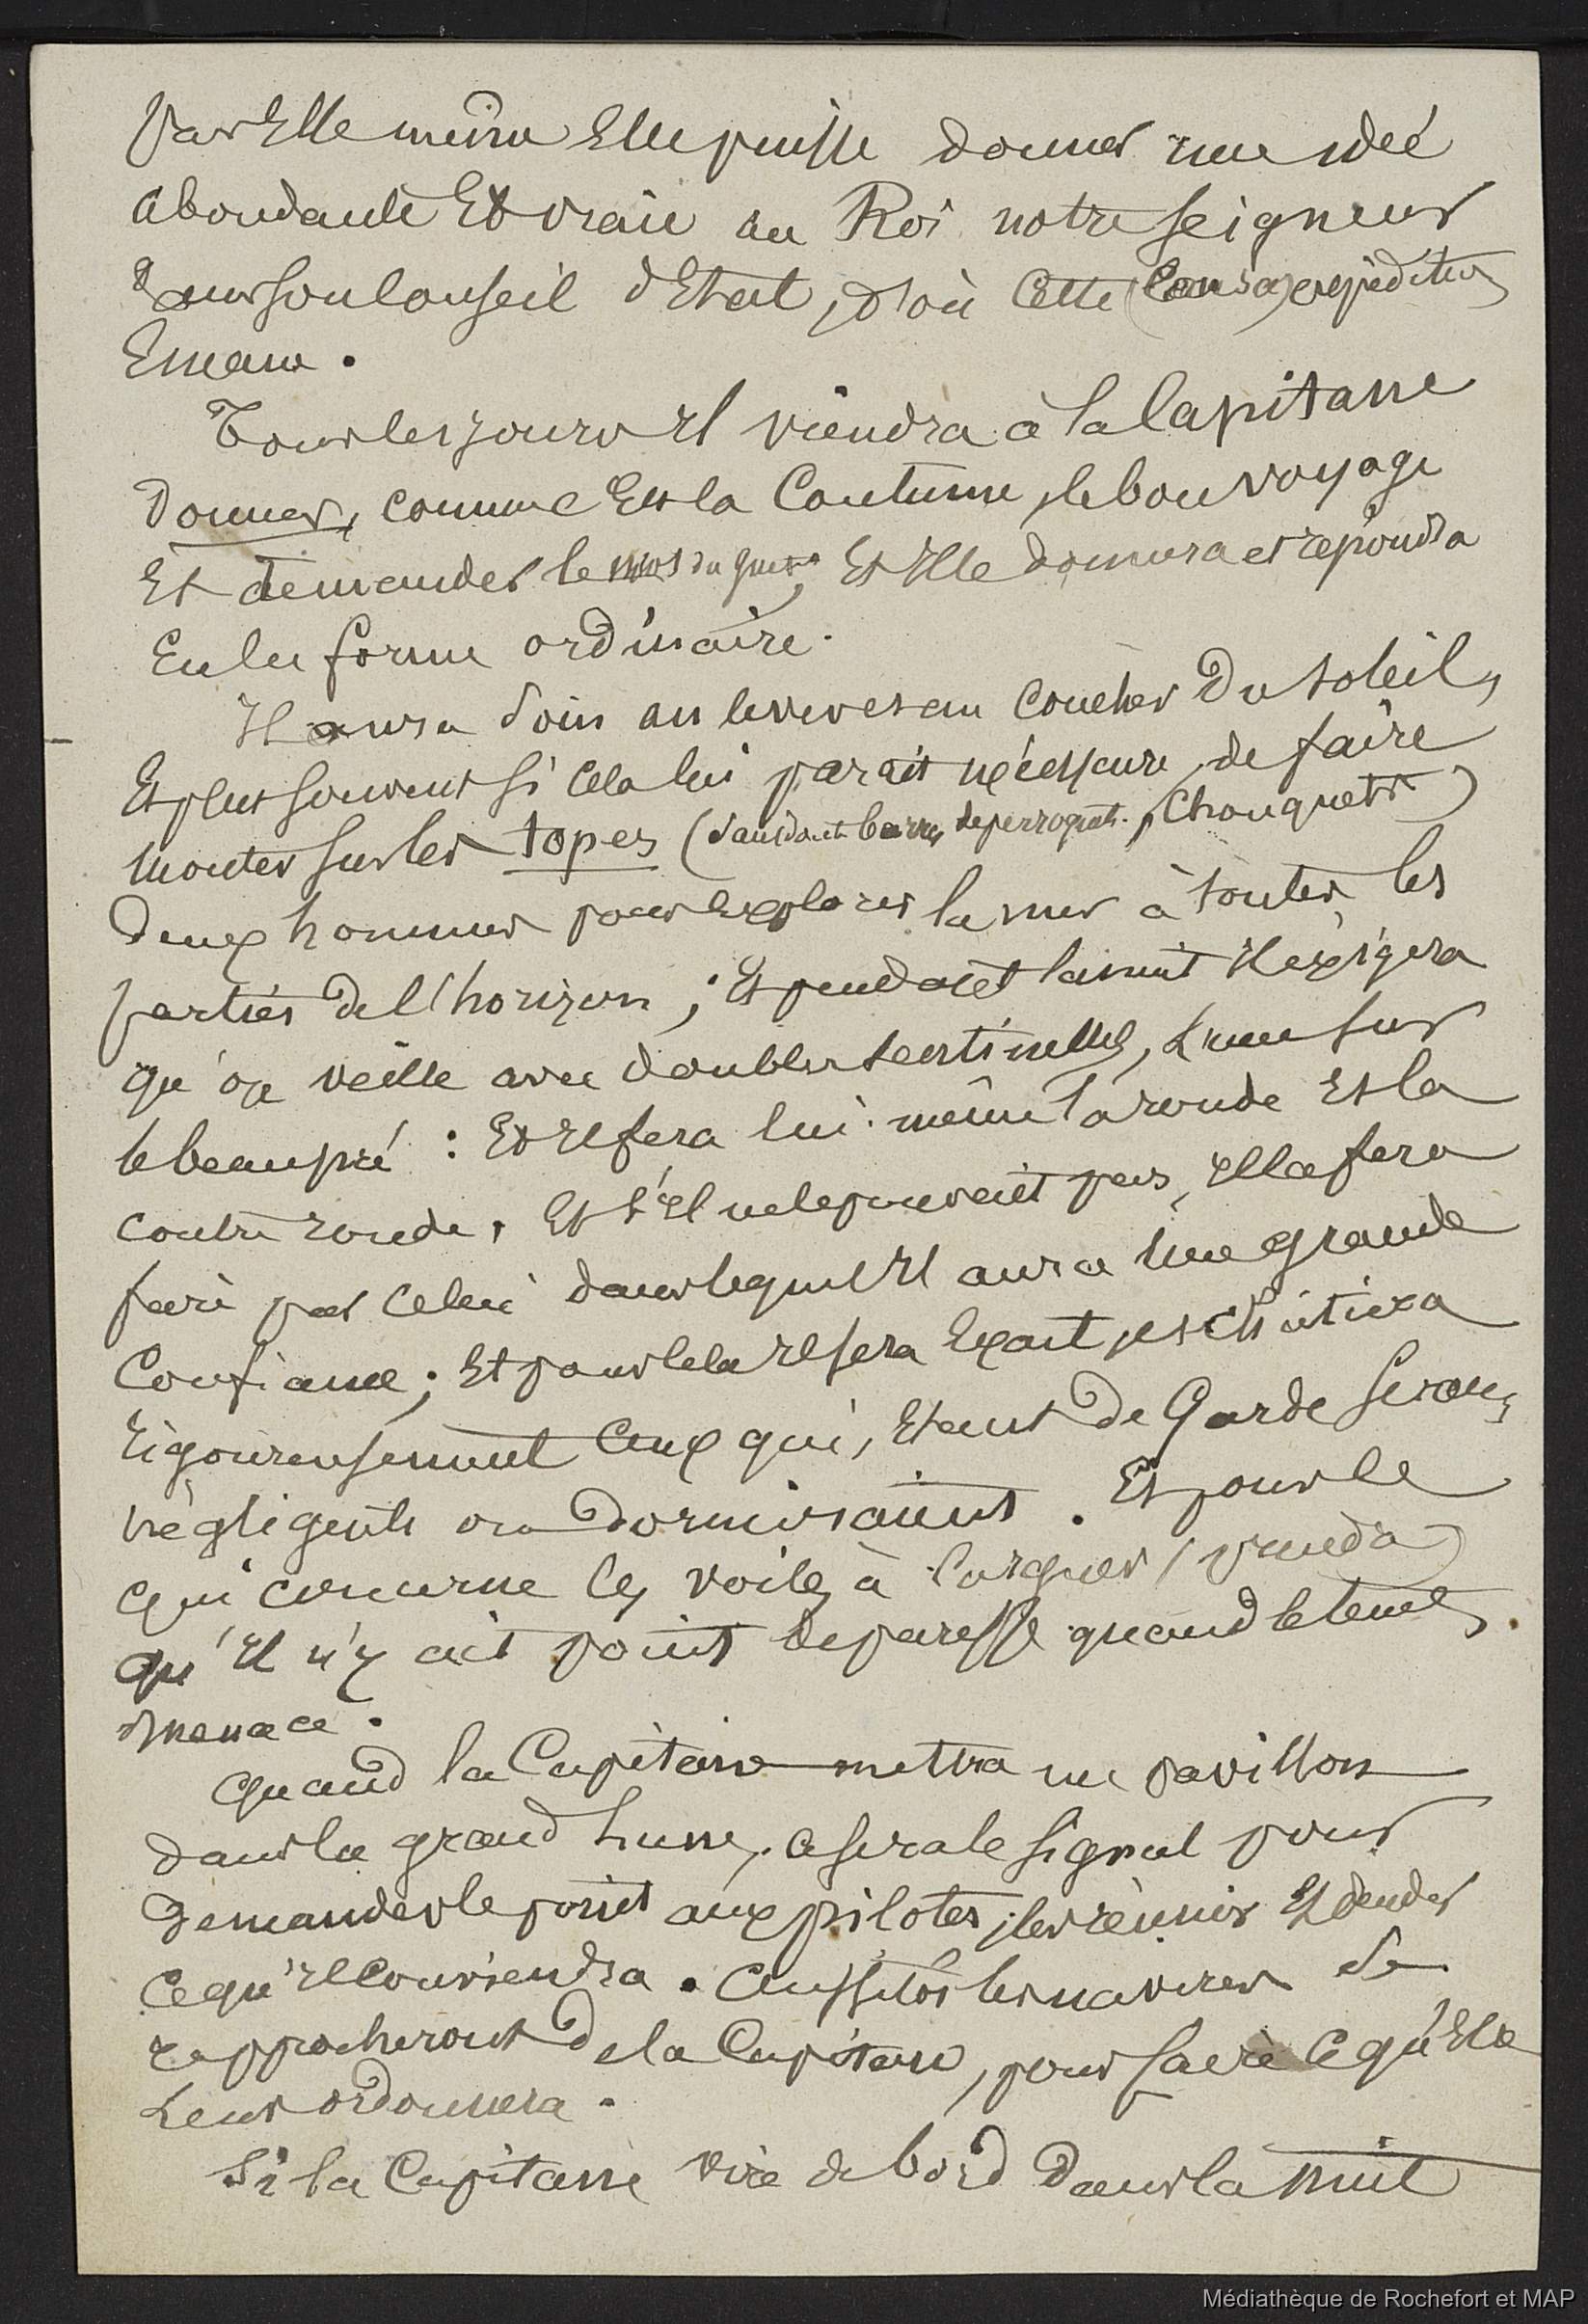 par Elle même Elle puisse donner une idée
abondante Et vraie au Roi notre seigneur
Et à son Conseil d'Etat, d'où cette (causa) expédition
Emane.
Tous les jours Il viendra à la Capitane
donner, comme Est la Coutume, le bon voyage
Et demander le mot du guet, Et Elle donnera et répondra
En la forme ordinaire.
Il aura soin au lever et au coucher du soleil,
Et plus souvent si cela lui parait nécessaire, de faire
monter sur les topes (barres de perroquet. Chouquets)
deux hommes pour Explorer la mer à toutes les
parties de l'horizon; Et pendant la nuit Il exigera
qu'on veille avec doubles sentinelles, L'une sur
le beaupré : Et Il fera lui même la ronde Et la
contre ronde. Et s'Il ne le pouvait pas, Il la fera
faire par celui dans lequel Il aura Une grande
Confiance; Et pour cela Il sera Exact, et châtiera
rigoureusement Ceux qui, Etant de Garde seront
négligents ou dormiraient. Et pour ce
qui concerne les voiles à larguer
qu'Il n'y ait point de paresse quand le tems
menace.
Quand la Capitane mettra un pavillon
dans la grand hune, ce sera le signal pour
demander le point aux pilotes, les réunir Et
ce qu'Il Conviendra. Aussitôt les navires se
rapprocheront de la Capitane, pour faire ce qu'Elle
Leur ordonnera.
Si la Capitane vire de bord dans la nuit
Médiathèque de Rochefort et MAP